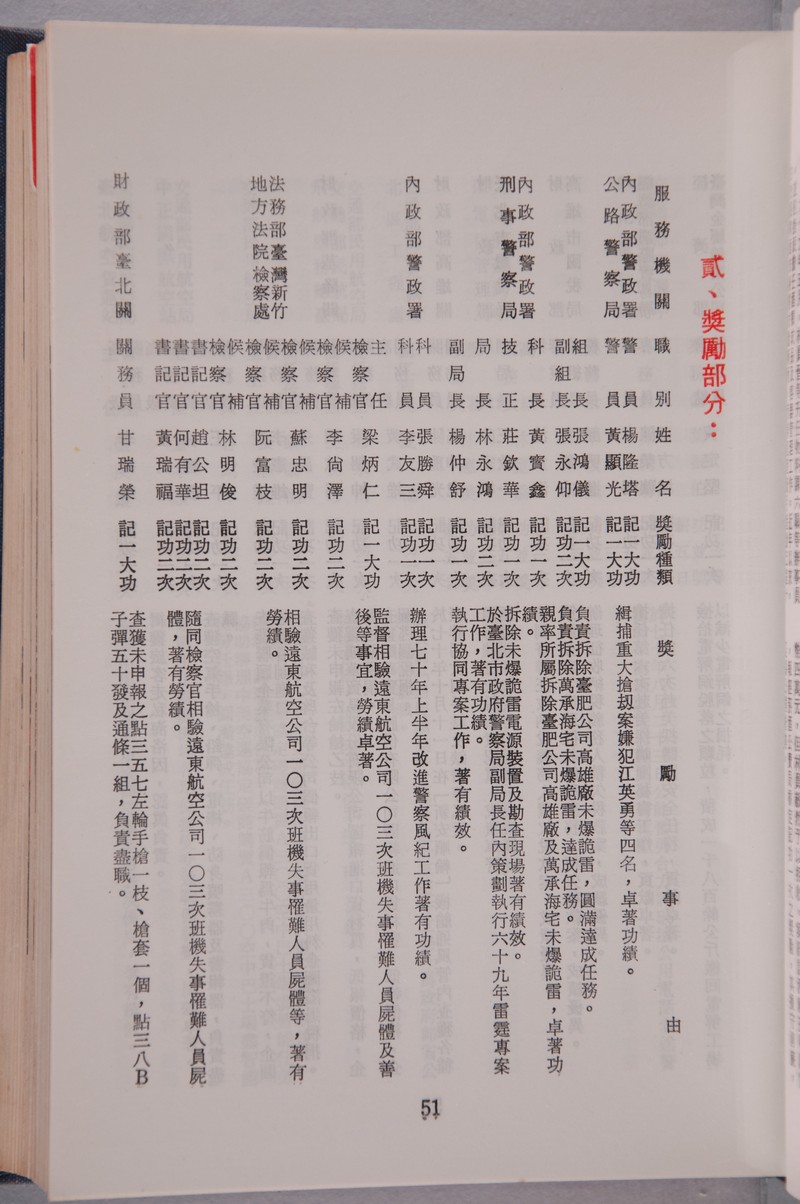 貳、獎勵部分：
服務機關 職別 姓名 獎勵種類 獎勵事由
內政部警政署
公路警察局
警員 楊隆塔 記一大功
警員 黃顯光 記一大功
緝捕重大搶刼案嫌犯江英勇等四名，卓著功績。
內政部警政署
刑事警察局
組長 張鴻儀 記一大功 負責拆除臺肥公司高雄廠未爆詭雷，圓滿達成任務。
副組長 張永仰 記功二次 負責拆除萬承海宅未爆詭雷，達成任務。
科長 黃寳鑫 記功一次 親率所屬拆除臺肥公司高雄廠及萬承海宅未爆詭雷，卓著功
績。
技正 莊欽華 記功一次 拆除未爆詭雷電源裝置及勘查現場著有績效。
局長 林永鴻 記功二次 於臺北市政府警察局副局長任內策劃執行六十九年雷霆專案
工作，著有功績。
副局長 楊仲舒 記功一次 執行協同專案工作，著有績效。
內政部警政署
科員 張勝舜 記功一次
科員 李友三 記功一次
辦理七十年上半年改進警察風紀工作著有功績。
法務部臺灣新竹
地方法院檢察處
主任
檢察官 梁炳仁 記一大功 監督相驗遠東航空公司一〇三次班機失事罹難人員屍體及善
後等事宜，勞績卓著。
候補
檢察官 李尙澤 記功二次
候補
檢察官 蘇忠明 記功二次
候補
檢察官 阮富枝 記功二次
候補
檢察官 林明俊 記功二次
相驗遠東航空公司一〇三次班機失事罹難人員屍體等，著有
勞績。
書記官 趙公坦 記功二次
書記官 何有華 記功二次
書記官 黃瑞福 記功二次
隨同檢察官相驗遠東航空公司一〇三次班機失事罹難人員屍
體，著有勞績。
財政部臺北關 關務員 甘瑞榮 記一大功 查獲未申報之點三五七左輪手槍一枝、槍套一個，點三八B
子彈五十發及通條一組，負責盡職。
51